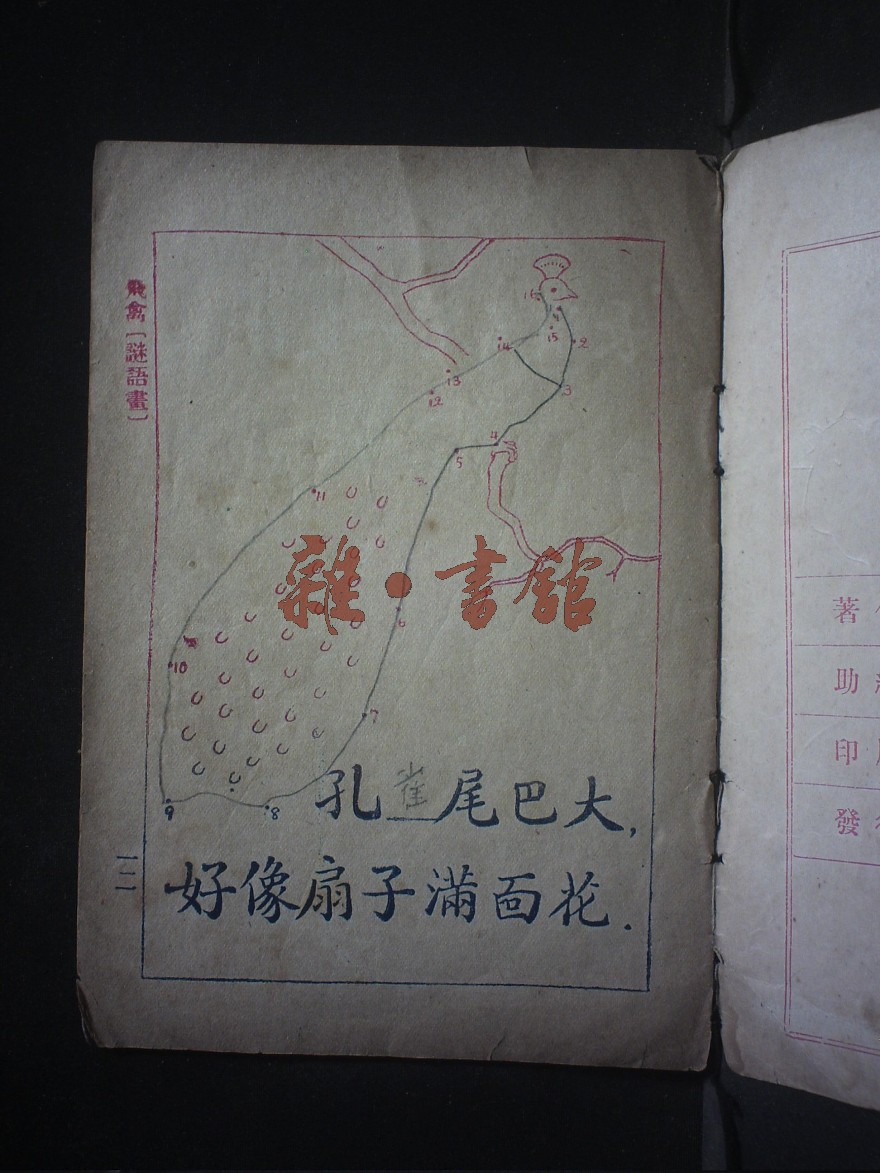 飛禽〔謎語畫〕
16
1
2
15
14
3
13
12
4
5
11
6
10
7
9
8
雜·書館
孔雀尾巴大,
好像扇子滿面花.
一二
著
助
印
發